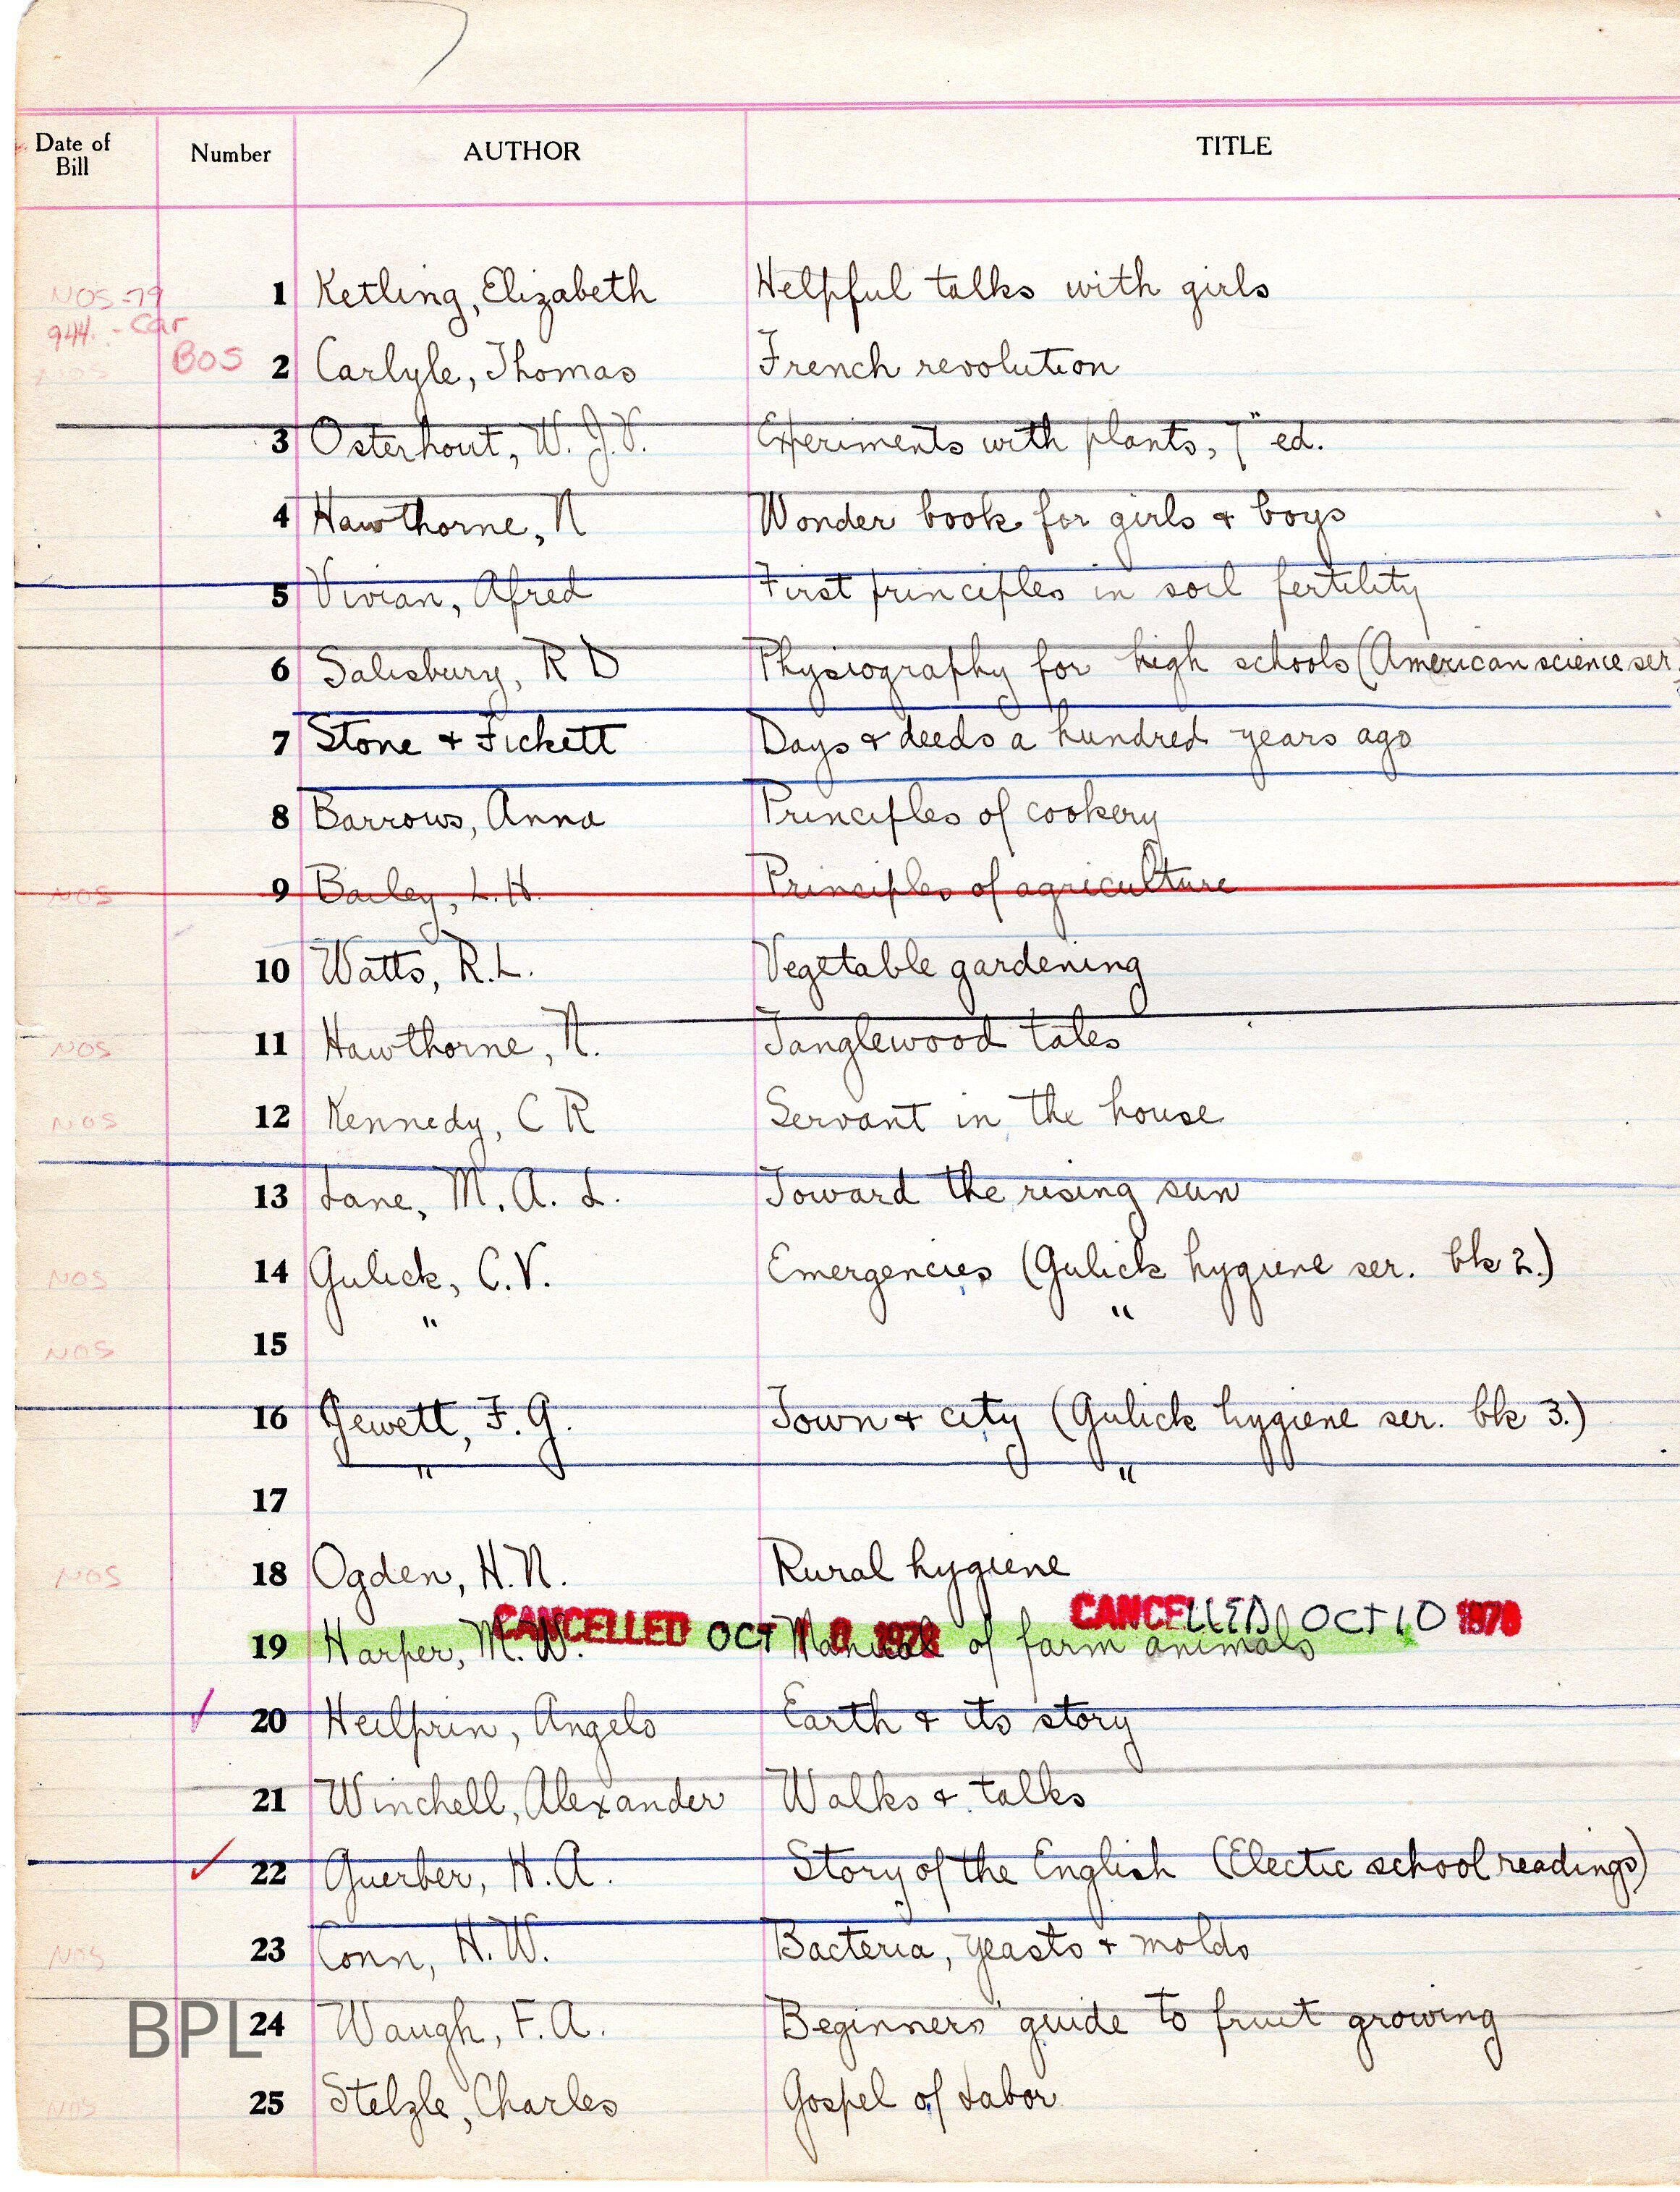 Date of Bill Number AUTHOR TITLE
NOS -79 1 Ketling, Elizabeth Helpful talks with girls
944. - Car
NOS BOS 2 Carlyle, Thomas French revolution
3 Osterhout, W. J.V. Experiments with plants, 7" ed.
4 Hawthorne, N Wonder book for girls + boys
5 Vivian, Afred First principles in soil fertility
6 Salisbury, R D Physiography for high schools (American science ser.
7 Stone + Fickett Days + deeds a hundred years ago
8 Barrows, Anna Principles of cookery
NOS 9 Bailey, L. H. Principles of agriculture
10 Watts, R.L. Vegetable gardening
NOS 11 Hawthorne, N. Tanglewood tales
NOS 12 Kennedy, C R Servant in the house
13 Lane, M. A. L. Toward the rising sun
NOS 14 Gulick, C.V. Emergencies (Gulick hygiene ser. bk 2.)
NOS 15 " "
16 Jewett, F. G. Town + city (Gulick hygiene ser. bk 3.)
17 " "
NOS 18 Ogden, H. N. Rural hygiene
CANCELLED OCT 10 1978 CANCELLED OCT 10 1978
19 Harper, M. W. Manual of farm animals
20 Heilprin, Angelo Earth + its story
21 Winchell, Alexander Walks + talks
22 Guerber, H. A. Story of the English (Electic school readings)
NOS 23 Conn, H. W. Bacteria, yeasts + molds
24 Waugh, F. A. Beginners' guide to fruit growing
BPL
NOS 25 Stelzle, Charles Gospel of Labor